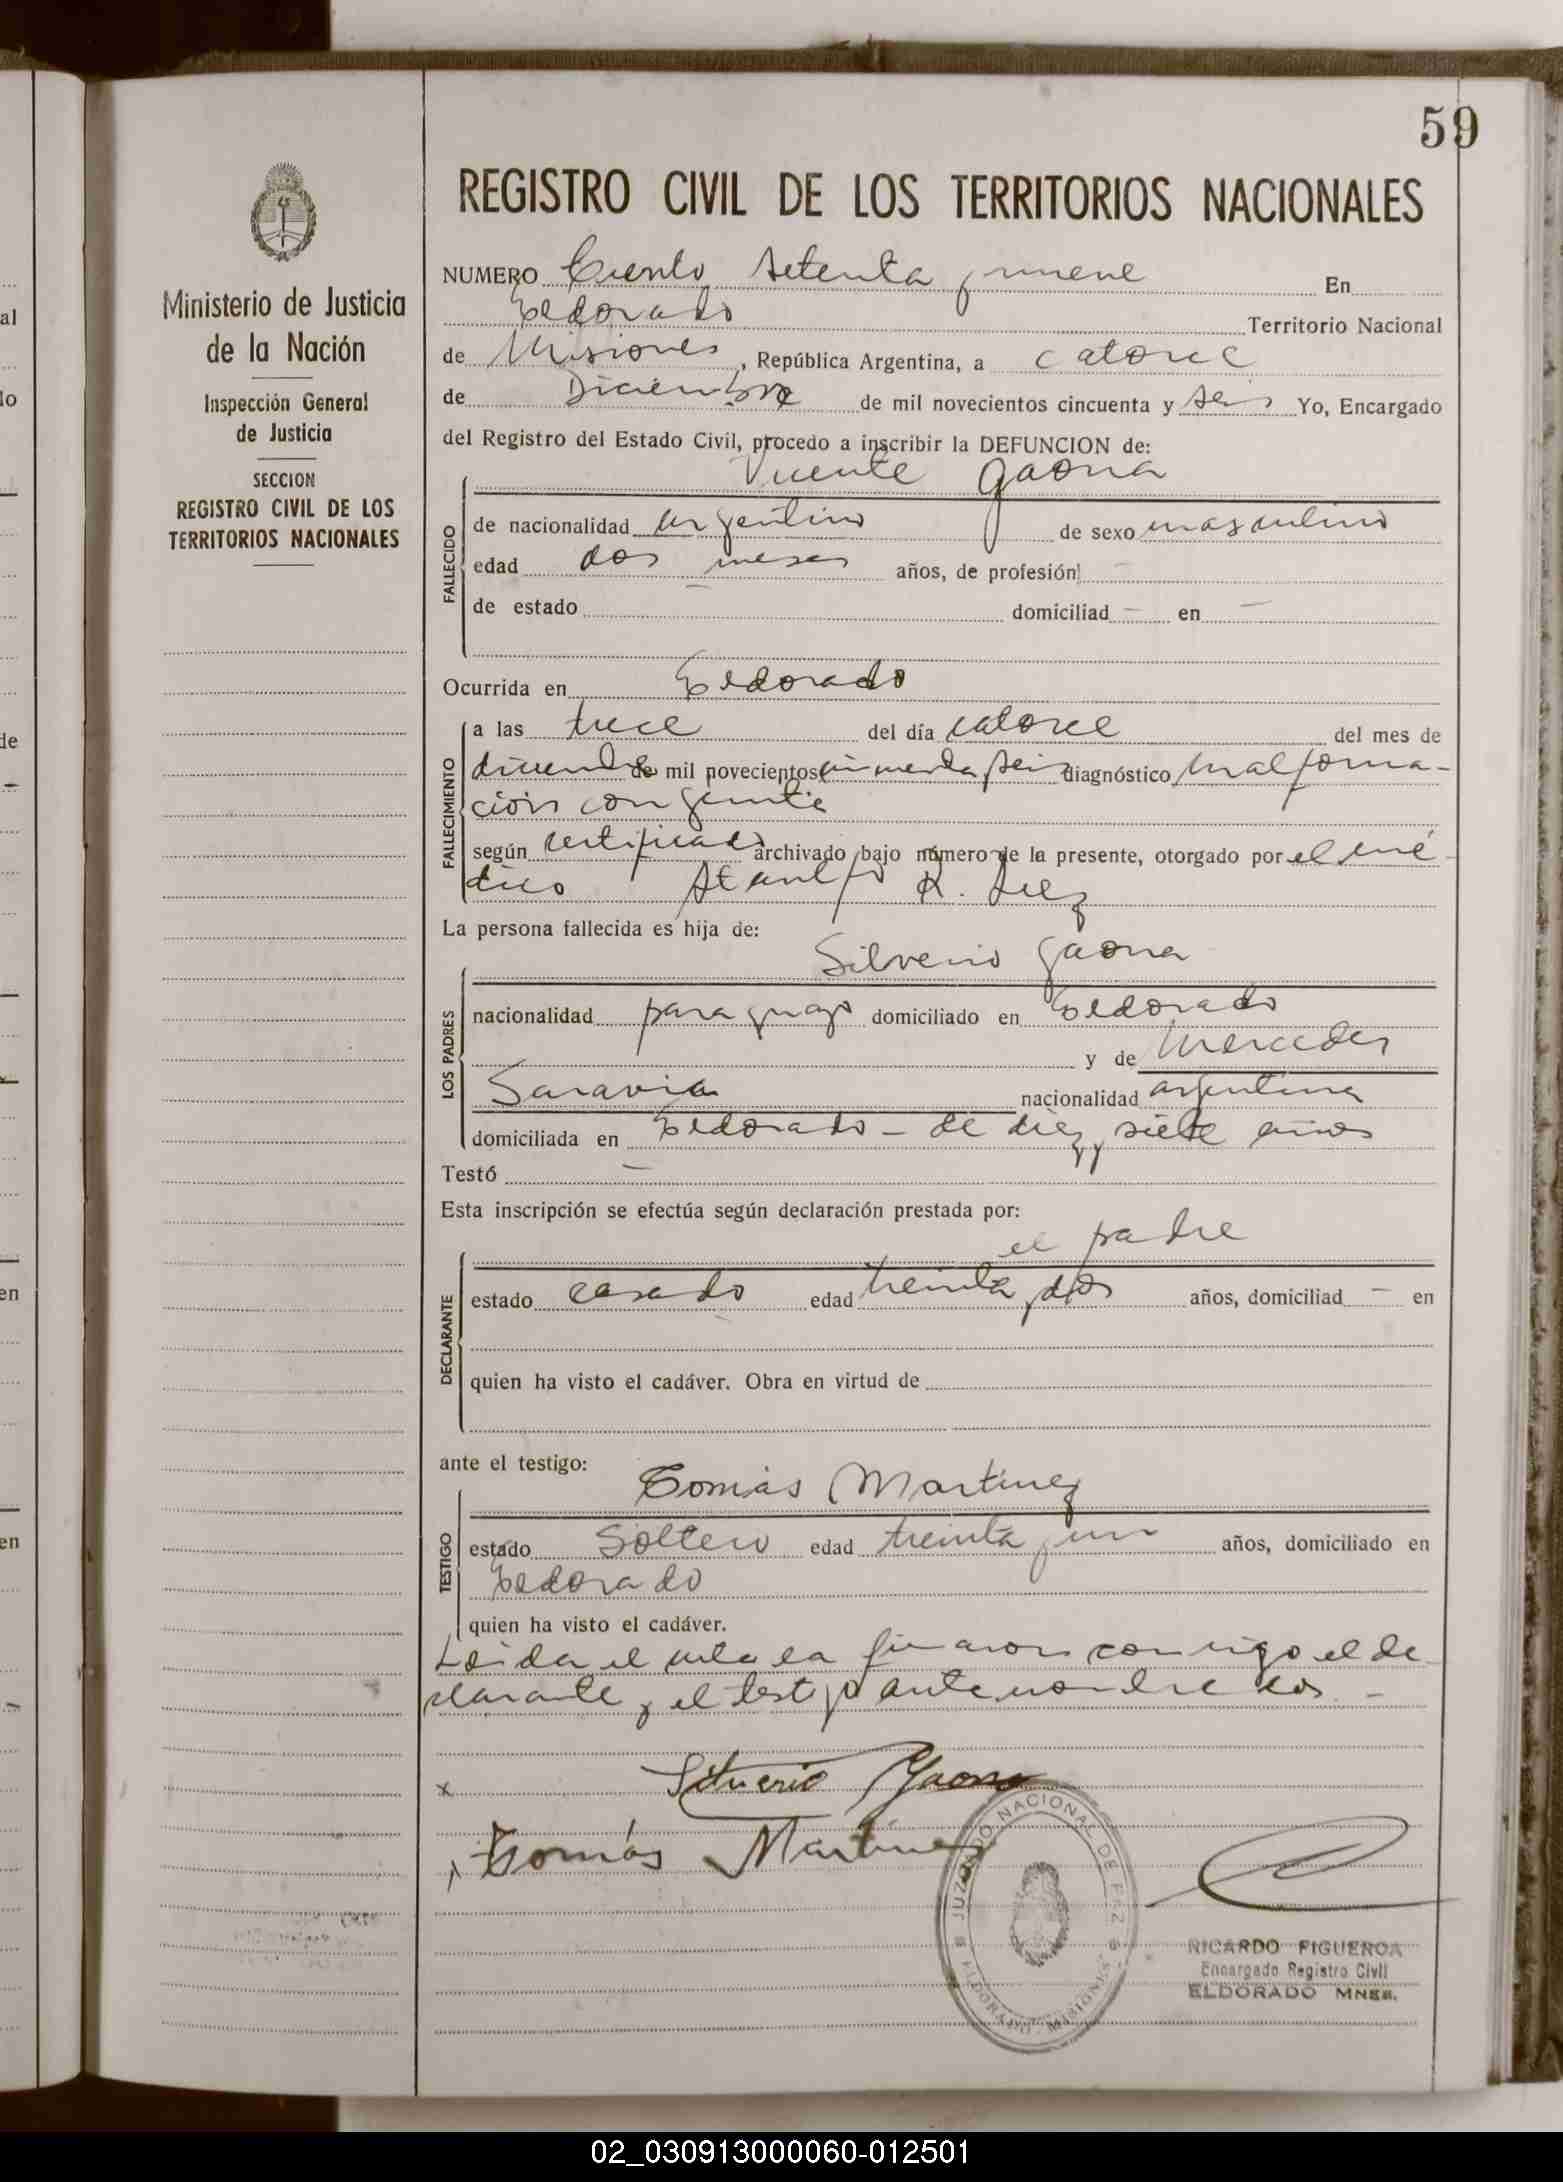 59
REGISTRO CIVIL DE LOS TERRITORIOS NACIONALES
Ministerio de Justicia
de la Nación
Inspección General
de Justicia
SECCION
REGISTRO CIVIL DE LOS
TERRITORIOS NACIONALES
NUMERO Ciento setenta y nueve En
Eldorado Territorio Nacional
de Misiones, República Argentina, a catorce
de Diciembre de mil novecientos cincuenta y seis Yo, Encargado
del Registro del Estado Civil, procedo a inscribir la DEFUNCION de:
Vicente Gaona
FALLECIDO
de nacionalidad argentino de sexo masculino
edad dos meses años, de profesión -
de estado domiciliad - en -
Ocurrida en Eldorado
FALLECIMIENTO
a las trece del día catorce del mes de
diciembre de mil novecientos cincuenta y seis diagnóstico malforma-
ción congenite
según certificado archivado bajo número de la presente, otorgado por el mé-
dico R. Diez
La persona fallecida es hija de:
Silverio Gaona
LOS PADRES
nacionalidad paraguayo domiciliado en Eldorado
y de Mercedes
Saravia nacionalidad argentina
domiciliada en Eldorado - de diez y siete años
Testó -
Esta inscripción se efectúa según declaración prestada por:
el padre
DECLARANTE
estado casado edad treinta y dos años, domiciliad - en
quien ha visto el cadáver. Obra en virtud de
ante el testigo:
Tomás Martinez
TESTIGO
estado Soltero edad treinta y un años, domiciliado en
Eldorado
quien ha visto el cadáver.
Leida el acta la firmaron conmigo el de-
clarante y el testigo antenombrados. -
x Silverio Gaona
Tomás Martinez
JUZGADO NACIONAL DE PAZ
ELDORADO - MISIONES
RICARDO FIGUEROA
Encargado Registro Civil
ELDORADO MNES.
02_030913000060-012501